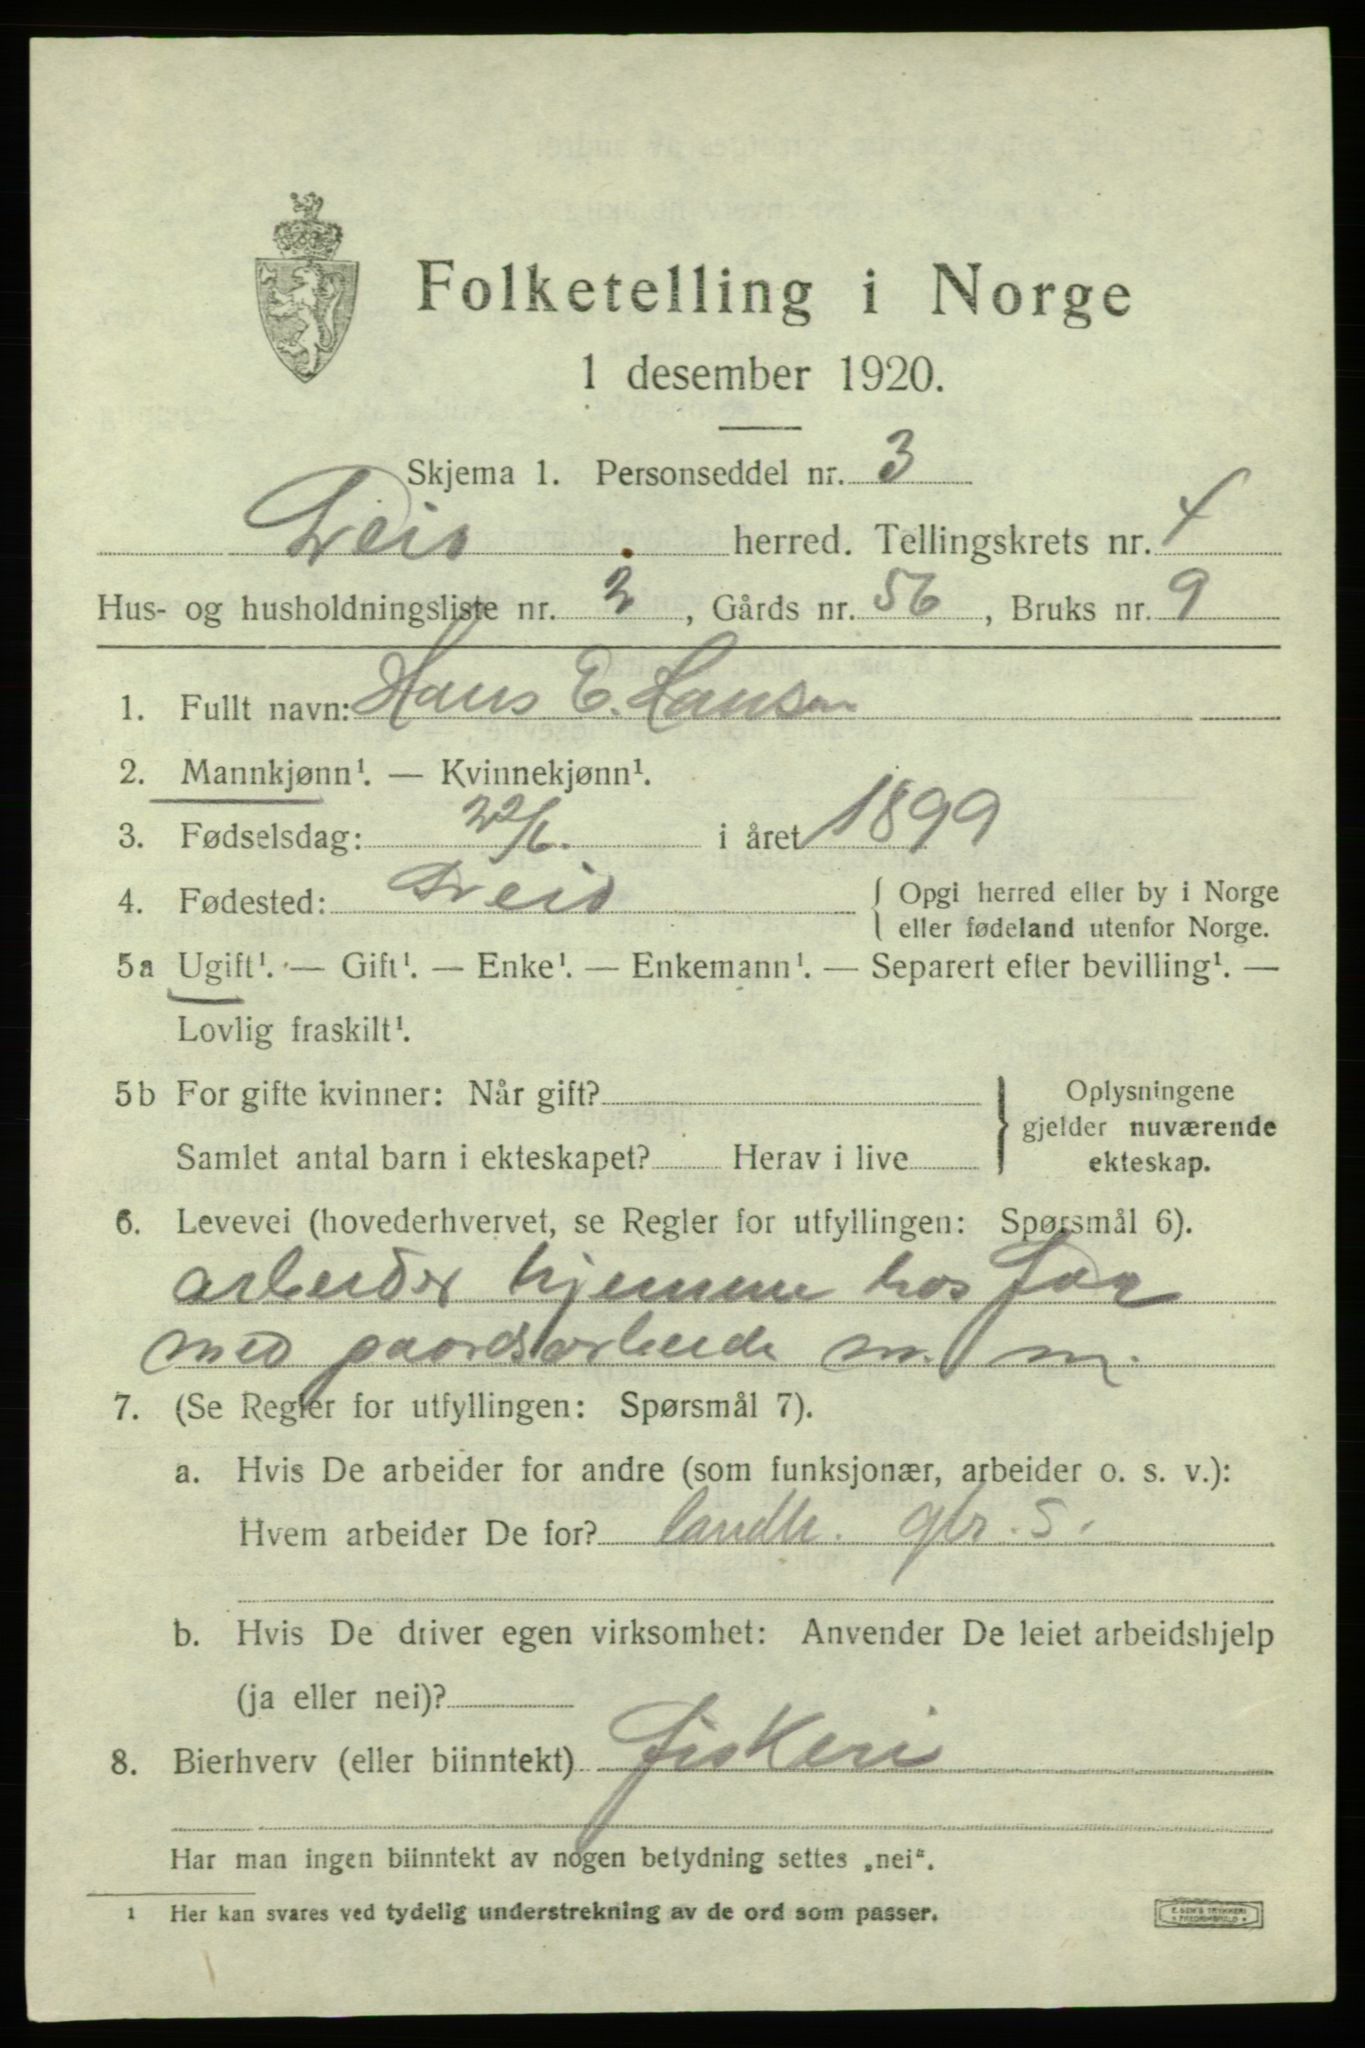 Folketelling i Norge
1 desember 1920.
Skjema 1. Personseddel nr. 3
herred. Tellingskrets nr. 4
Hus- og husholdningsliste nr. 2, Gårds nr. 56, Bruks nr. 9
1. Fullt navn: Hans E. Lauson
2. Mannkjønn¹. — Kvinnekjønn¹.
3. Fødselsdag: 22/6. i året 1899
4. Fødested: { Opgi herred eller by i Norge
eller fødeland utenfor Norge.
5a Ugift¹. — Gift¹. — Enke¹. — Enkemann¹. — Separert efter bevilling¹. —
Lovlig fraskilt¹.
5b For gifte kvinner: Når gift?
Samlet antal barn i ekteskapet? Herav i live
} Oplysningene
gjelder nuværende
ekteskap.
6. Levevei (hovederhvervet, se Regler for utfyllingen: Spørsmål 6).
arbeider hjemme hos far
med gaardsarbeide m. m.
7. (Se Regler for utfyllingen: Spørsmål 7).
a. Hvis De arbeider for andre (som funksjonær, arbeider o. s. v.):
Hvem arbeider De for? landbr. gbr. s.
b. Hvis De driver egen virksomhet: Anvender De leiet arbeidshjelp
(ja eller nei)?
8. Bierhverv (eller biinntekt) Fiskeri
Har man ingen biinntekt av nogen betydning settes „nei“.
1 Her kan svares ved tydelig understrekning av de ord som passer.